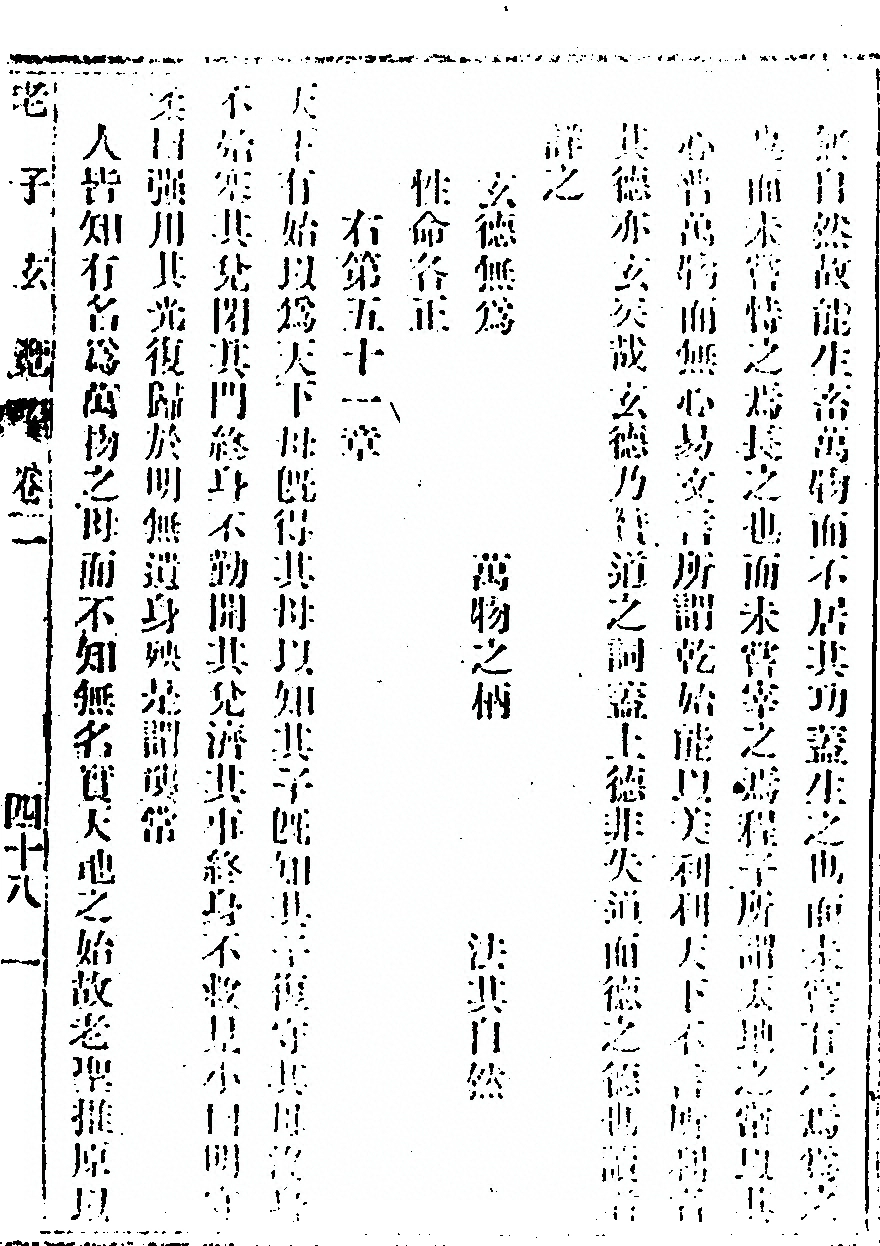 無自然故能生畜萬物而不居其功蓋生之也而未嘗有之爲爲之
也而未嘗恃之爲長之也而未嘗宰之爲程子所謂天地之常以其
心普萬物而無心易文言所謂乾始能以美利利天下不言所利者
其德亦玄矣哉玄德乃贊道之詞蓋上德非失道而德之德也讀者
詳之
玄德無爲 萬物之柄 法其自然
性命各正
右第五十一章
天下有始以爲天下母旣得其母以知其子旣知其子復守其母沒身
不殆塞其兌閉其門終身不勤開其兌濟其事終身不救見小曰明守
柔曰强用其光復歸於明無遺身殃是謂襲常
人皆知有名爲萬物之母而不知無名實天地之始故老聖推原以
老子玄 卷二 四十八 一